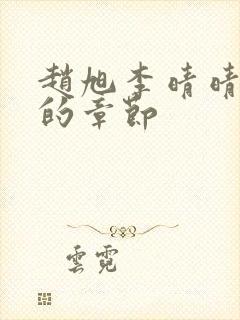 趙旭李晴晴
的章節
雲霓